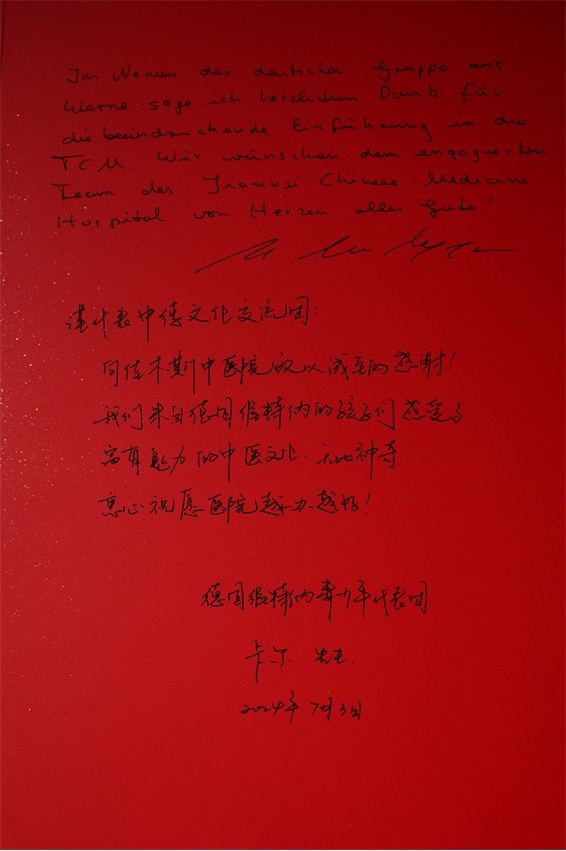 Im Namen der deutschen Gruppe aus
Werne sage ich herzlichen Dank für
die beeindruckende Einführung in die
TCM. Wir wünschen dem engagierten
Team des Jiamusi Chinese Medicine
Hospital von Herzen alles Gute!
谨代表中德文化交流团:
向佳木斯中医院致以诚挚的感谢!
我们来自德国维特内的孩子们感受了
富有魅力的中医文化. 无比神奇.
衷心祝愿医院越办越好!
德国维特内青少年代表团
卡尔 先生.
2024年7月3日